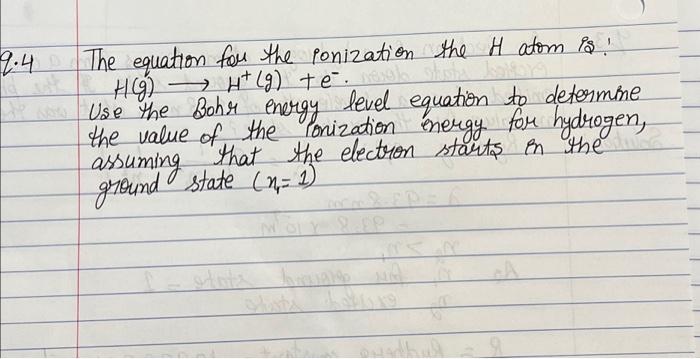 Q.4 The equation for the ionization the H atom is:
H(g) → H⁺(g) + e⁻.
Use the Bohr energy level equation to determine
the value of the ionization energy for hydrogen,
assuming that the electron starts in the
ground state (n₁ = 1)